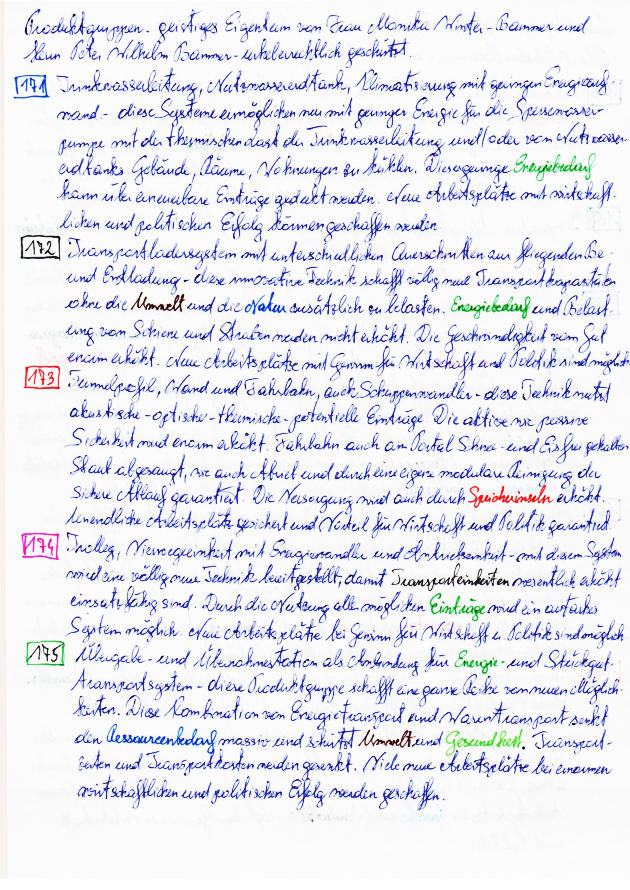 Produktgruppen - geistiges Eigentum von Frau Monika Winter-Bammer und
Herrn Peter Wilhelm Bammer - urheberrechtlich geschützt.
171 Trinkwasserleitung, Nutzwassererdtank, Klimatisierung mit geringem Energieauf-
wand - diese Systeme ermöglichen nur mit geringer Energie für die Speisewasser-
pumpe mit der thermischen Last der Trinkwasserleitung und/oder vom Nutzwasser-
erdtanks Gebäude, Räume, Wohnungen zu kühlen. Dieser geringe Energiebedarf
kann über erneuerbare Einträge gedeckt werden. Neue Arbeitsplätze mit wirtschaft-
lichen und politischen Erfolg können geschaffen werden.
172 Transportladersystem mit unterschiedlichen Querschnitten zur fliegenden Be-
und Entladung - diese innovative Technik schafft völlig neue Transportkapazitäten
ohne die Umwelt und die Natur zusätzlich zu belasten. Energiebedarf und Belast-
ung von Schiene und Straßen werden nicht erhöht. Die Geschwindigkeit vom Gut
enorm erhöht. Neue Arbeitsplätze mit Gewinn für Wirtschaft und Politik sind möglich.
173 Tunnelprofil, Wand und Fahrbahn, auch Schuppenwandler - diese Technik nutzt
akustische - optische - thermische - potentielle Einträge. Die aktive wie passive
Sicherheit wird enorm erhöht. Fahrbahn auch am Portal Schnee- und Eisfrei gehalten
Staub abgesaugt, wie auch Abrieb und durch eine eigene modulare Reinigung der
sichere Ablauf garantiert. Die Versorgung wird auch durch Speicherinseln erhöht.
Unendliche Arbeitsplätze gesichert und Vorteil für Wirtschaft und Politik garantiert.
174 Trolley, Vierwegeeinheit mit Energiewandler und Antriebseinheit - mit diesem System
wird eine völlig neue Technik bereitgestellt, damit Transporteinheiten wesentlich erhöht
einsatzfähig sind. Durch die Nutzung aller möglichen Einträge wird ein autarkes
System möglich. Neue Arbeitsplätze bei Gewinn für Wirtschaft u. Politik sind möglich
175 Übergabe- und Übernahmestation als Anbindung für Energie- und Stückgut-
Transportsystem - diese Produktgruppe schafft eine ganze Reihe von neuen Möglich-
keiten. Diese Kombination von Energietransport und Warentransport senkt
den Ressourcenbedarf massiv und schützt Umwelt und Gesundheit. Transport-
zeiten und Transportkosten werden gesenkt. Viele neue Arbeitsplätze bei enormen
wirtschaftlichen und politischen Erfolg werden geschaffen.